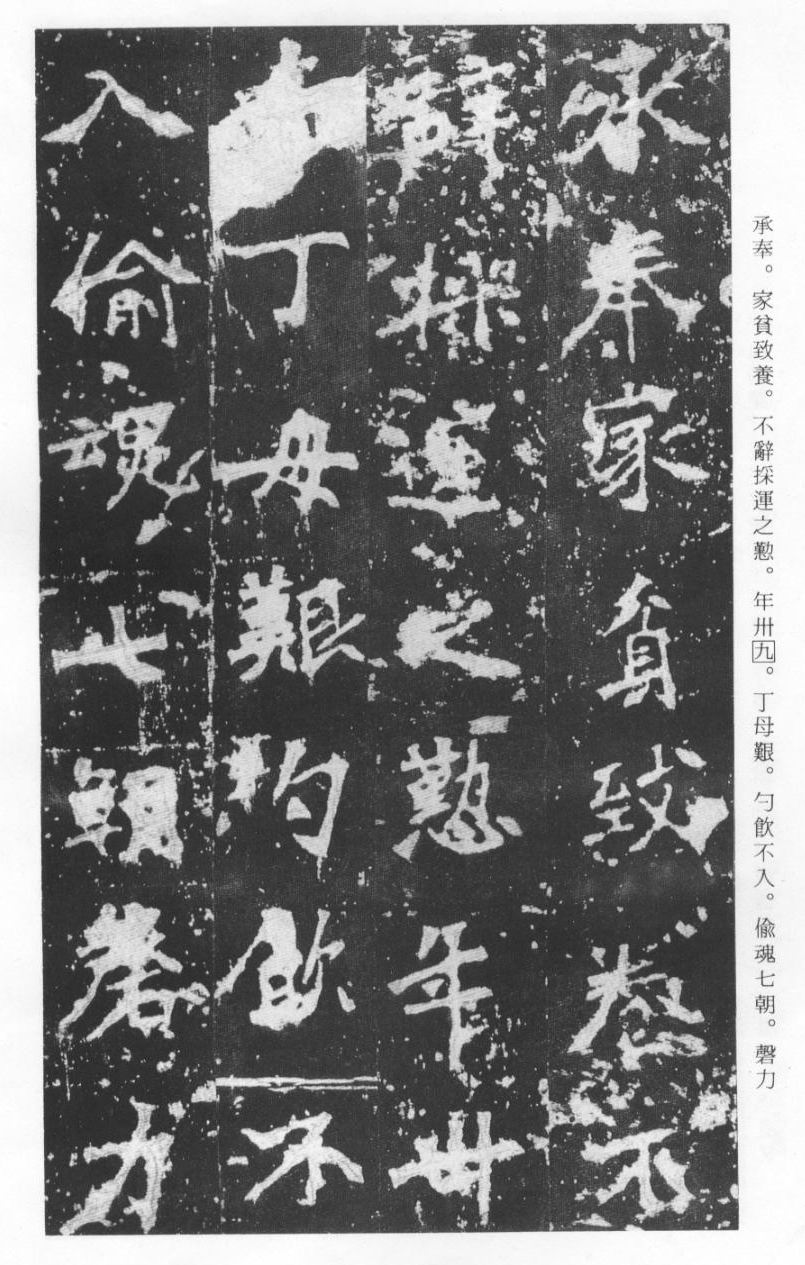 承奉。家貧致養。不辭採運之懃。年卅九。丁母艱。勺飲不入。偷魂七朝。磬力
承奉家貧致養不
辭採運之懃年卅
丁母艱杓飲不
入偷魂七朝磬力